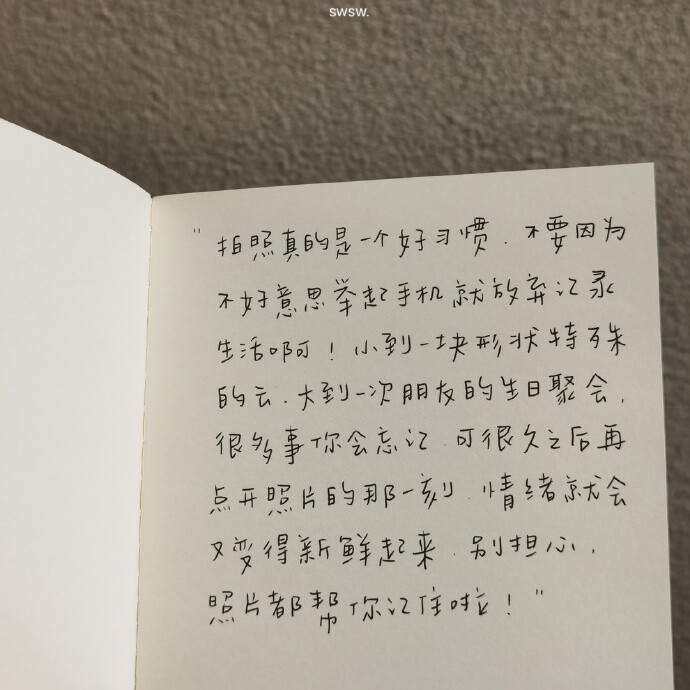 swsw.
"拍照真的是一个好习惯.不要因为
不好意思举起手机就放弃记录
生活啊!小到一块形状特殊
的云.大到一次朋友的生日聚会.
很多事你会忘记.可很久之后再
点开照片的那一刻.情绪就会
又变得新鲜起来.别担心.
照片都帮你记住啦!"